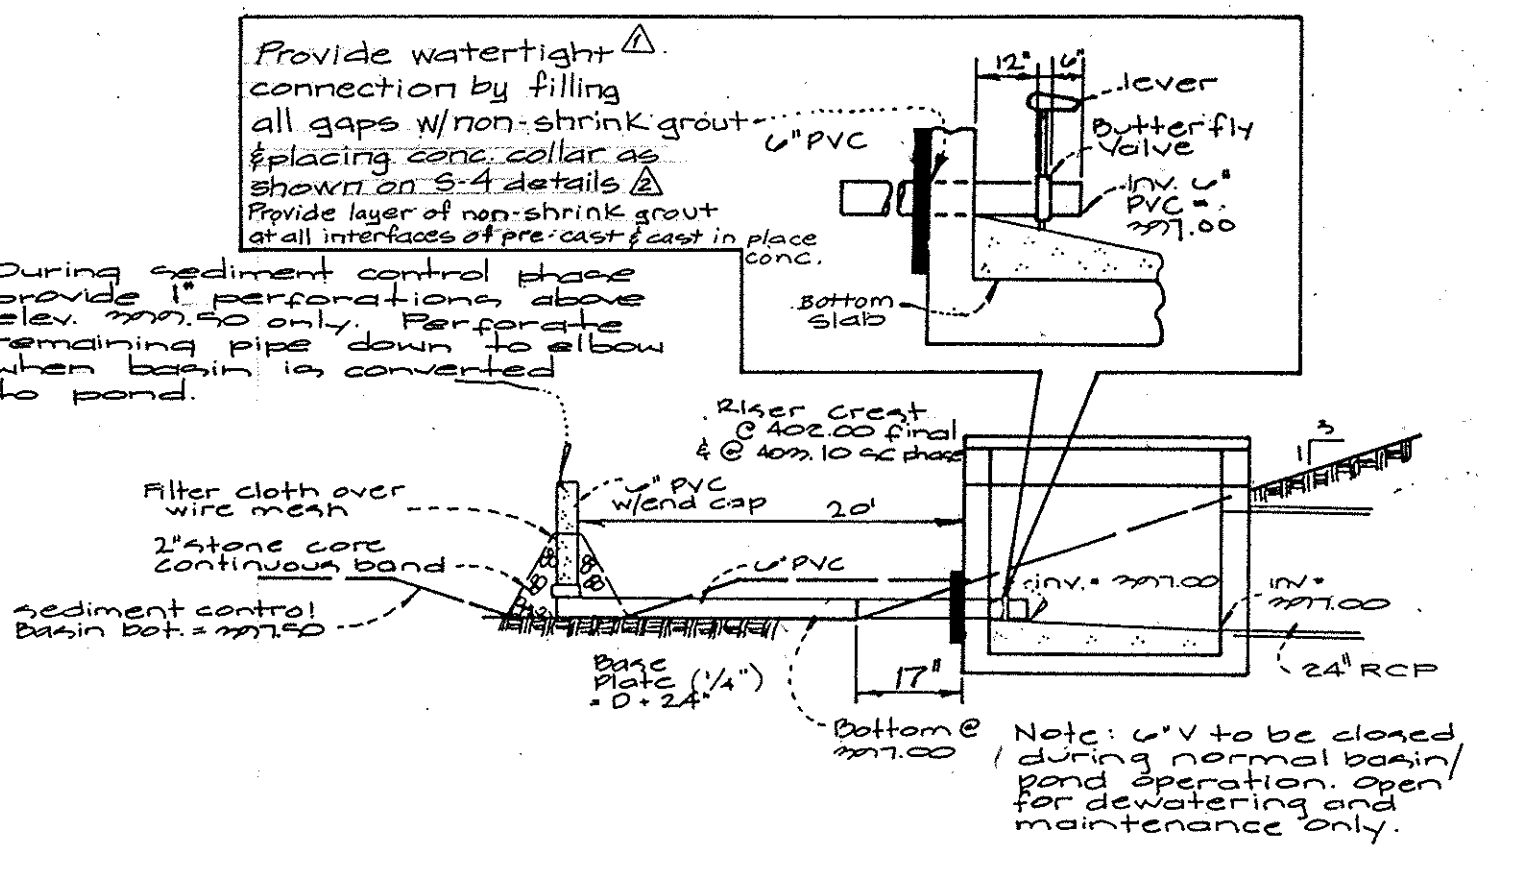 Provide watertight 1
connection by filling
all gaps w/non-shrink grout
& placing conc. collar as
shown on S-4 details 2
Provide layer of non-shrink grout
at all interfaces of pre-cast & cast in place
conc.
6" PVC
12"
6"
lever
Butterfly
Valve
Inv. 6"
PVC =
397.00
Bottom
slab
During sediment control phase
provide 1" perforations above
elev. 399.50 only. Perforate
remaining pipe down to elbow
when basin is converted
to pond.
Riser Crest
@ 402.00 final
& @ 403.10 SC phase
3
1
Filter cloth over
wire mesh
6" PVC
w/end cap
20'
2" stone core
continuous band
6" PVC
inv. = 397.00
inv =
397.00
sediment control
Basin bot. = 397.50
Base
Plate (1/4")
= D + 24"
17"
24" RCP
Bottom @
397.00
Note: 6" V to be closed
during normal basin/
pond operation. Open
for dewatering and
maintenance only.